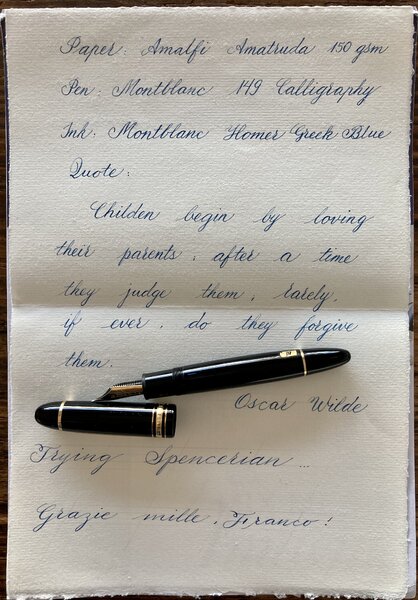 Paper: Amalfi Amatruda 150 gsm
Pen: Montblanc 149 Calligraphy
Ink: Montblanc Homer Greek Blue
Quote:
Childen begin by loving
their parents, after a time
they judge them, rarely,
if ever, do they forgive
them.
Oscar Wilde
Trying Spencerian ...
Grazie mille, Franco!